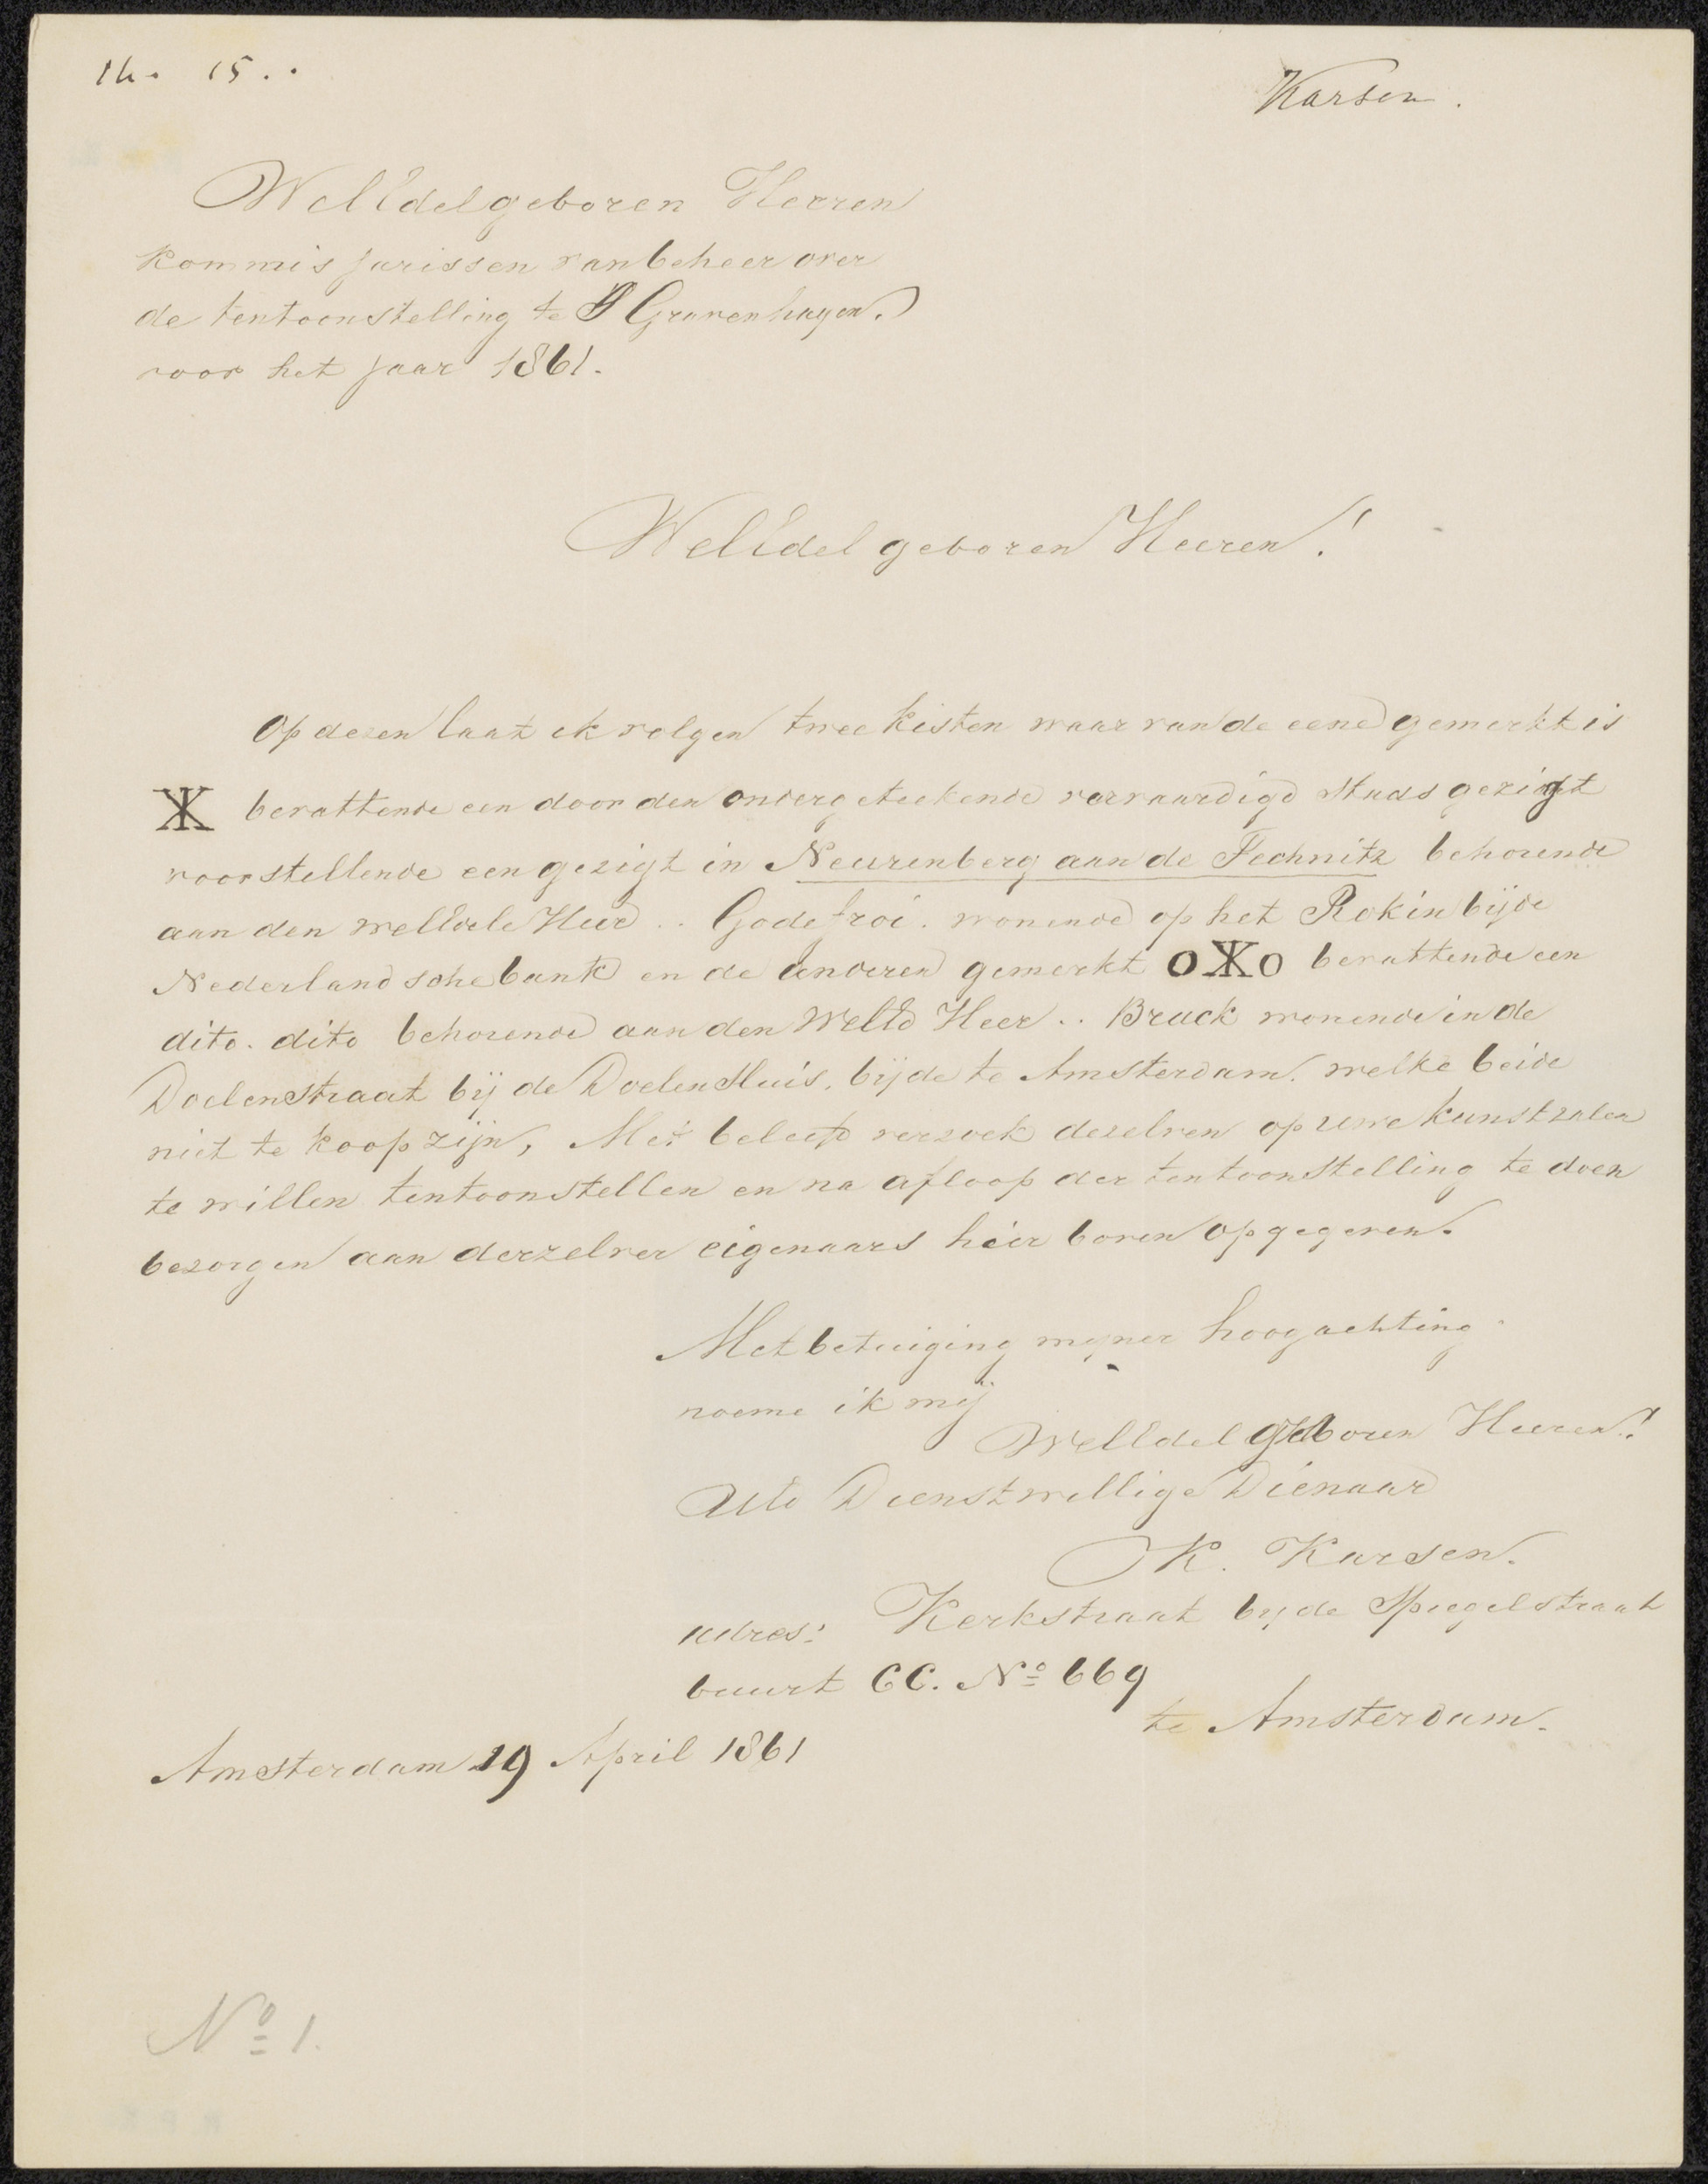 14. 15..
Karsen.
WelEdelgeboren Heeren
kommisjarissen van beheer over
de tentoonstelling te S Gravenhagen.
voor het jaar 1861.
WelEdel geboren Heeren!
Op dezen laat ik volgen twee kisten waar van de eene gemerkt is
bevattende een door den ondergeteekende vervaardigd Stads gezigt
voorstellende een gezigt in Neurenberg aan de Pechnitz behorende
aan den welEdele Heer .. Godefroi. wonende op het Rokin bij de
Nederlandsche bank en de anderen gemerkt oXo bevattende een
dito. dito behorende aan den WelEd Heer .. Brack wonende in de
Doelenstraat bij de Doelen Sluis, bijde te Amsterdam. welke beide
niet te koop zijn, Met beleefd verzoek dezelven op uwe kunstzalen
te willen tentoonstellen en na afloop der tentoonstelling te doen
bezorgen aan derzelver eigenaars hier boven opgegeven.
Met betuiging mijner hoogachting
noeme ik mij
WelEdel geboren Heeren!
UEd Dienstwillige Dienaar
K. Karsen.
adres: Kerkstraat bij de Spiegelstraat
buurt CC. No 669
te Amsterdam.
Amsterdam 19 April 1861
No 1.